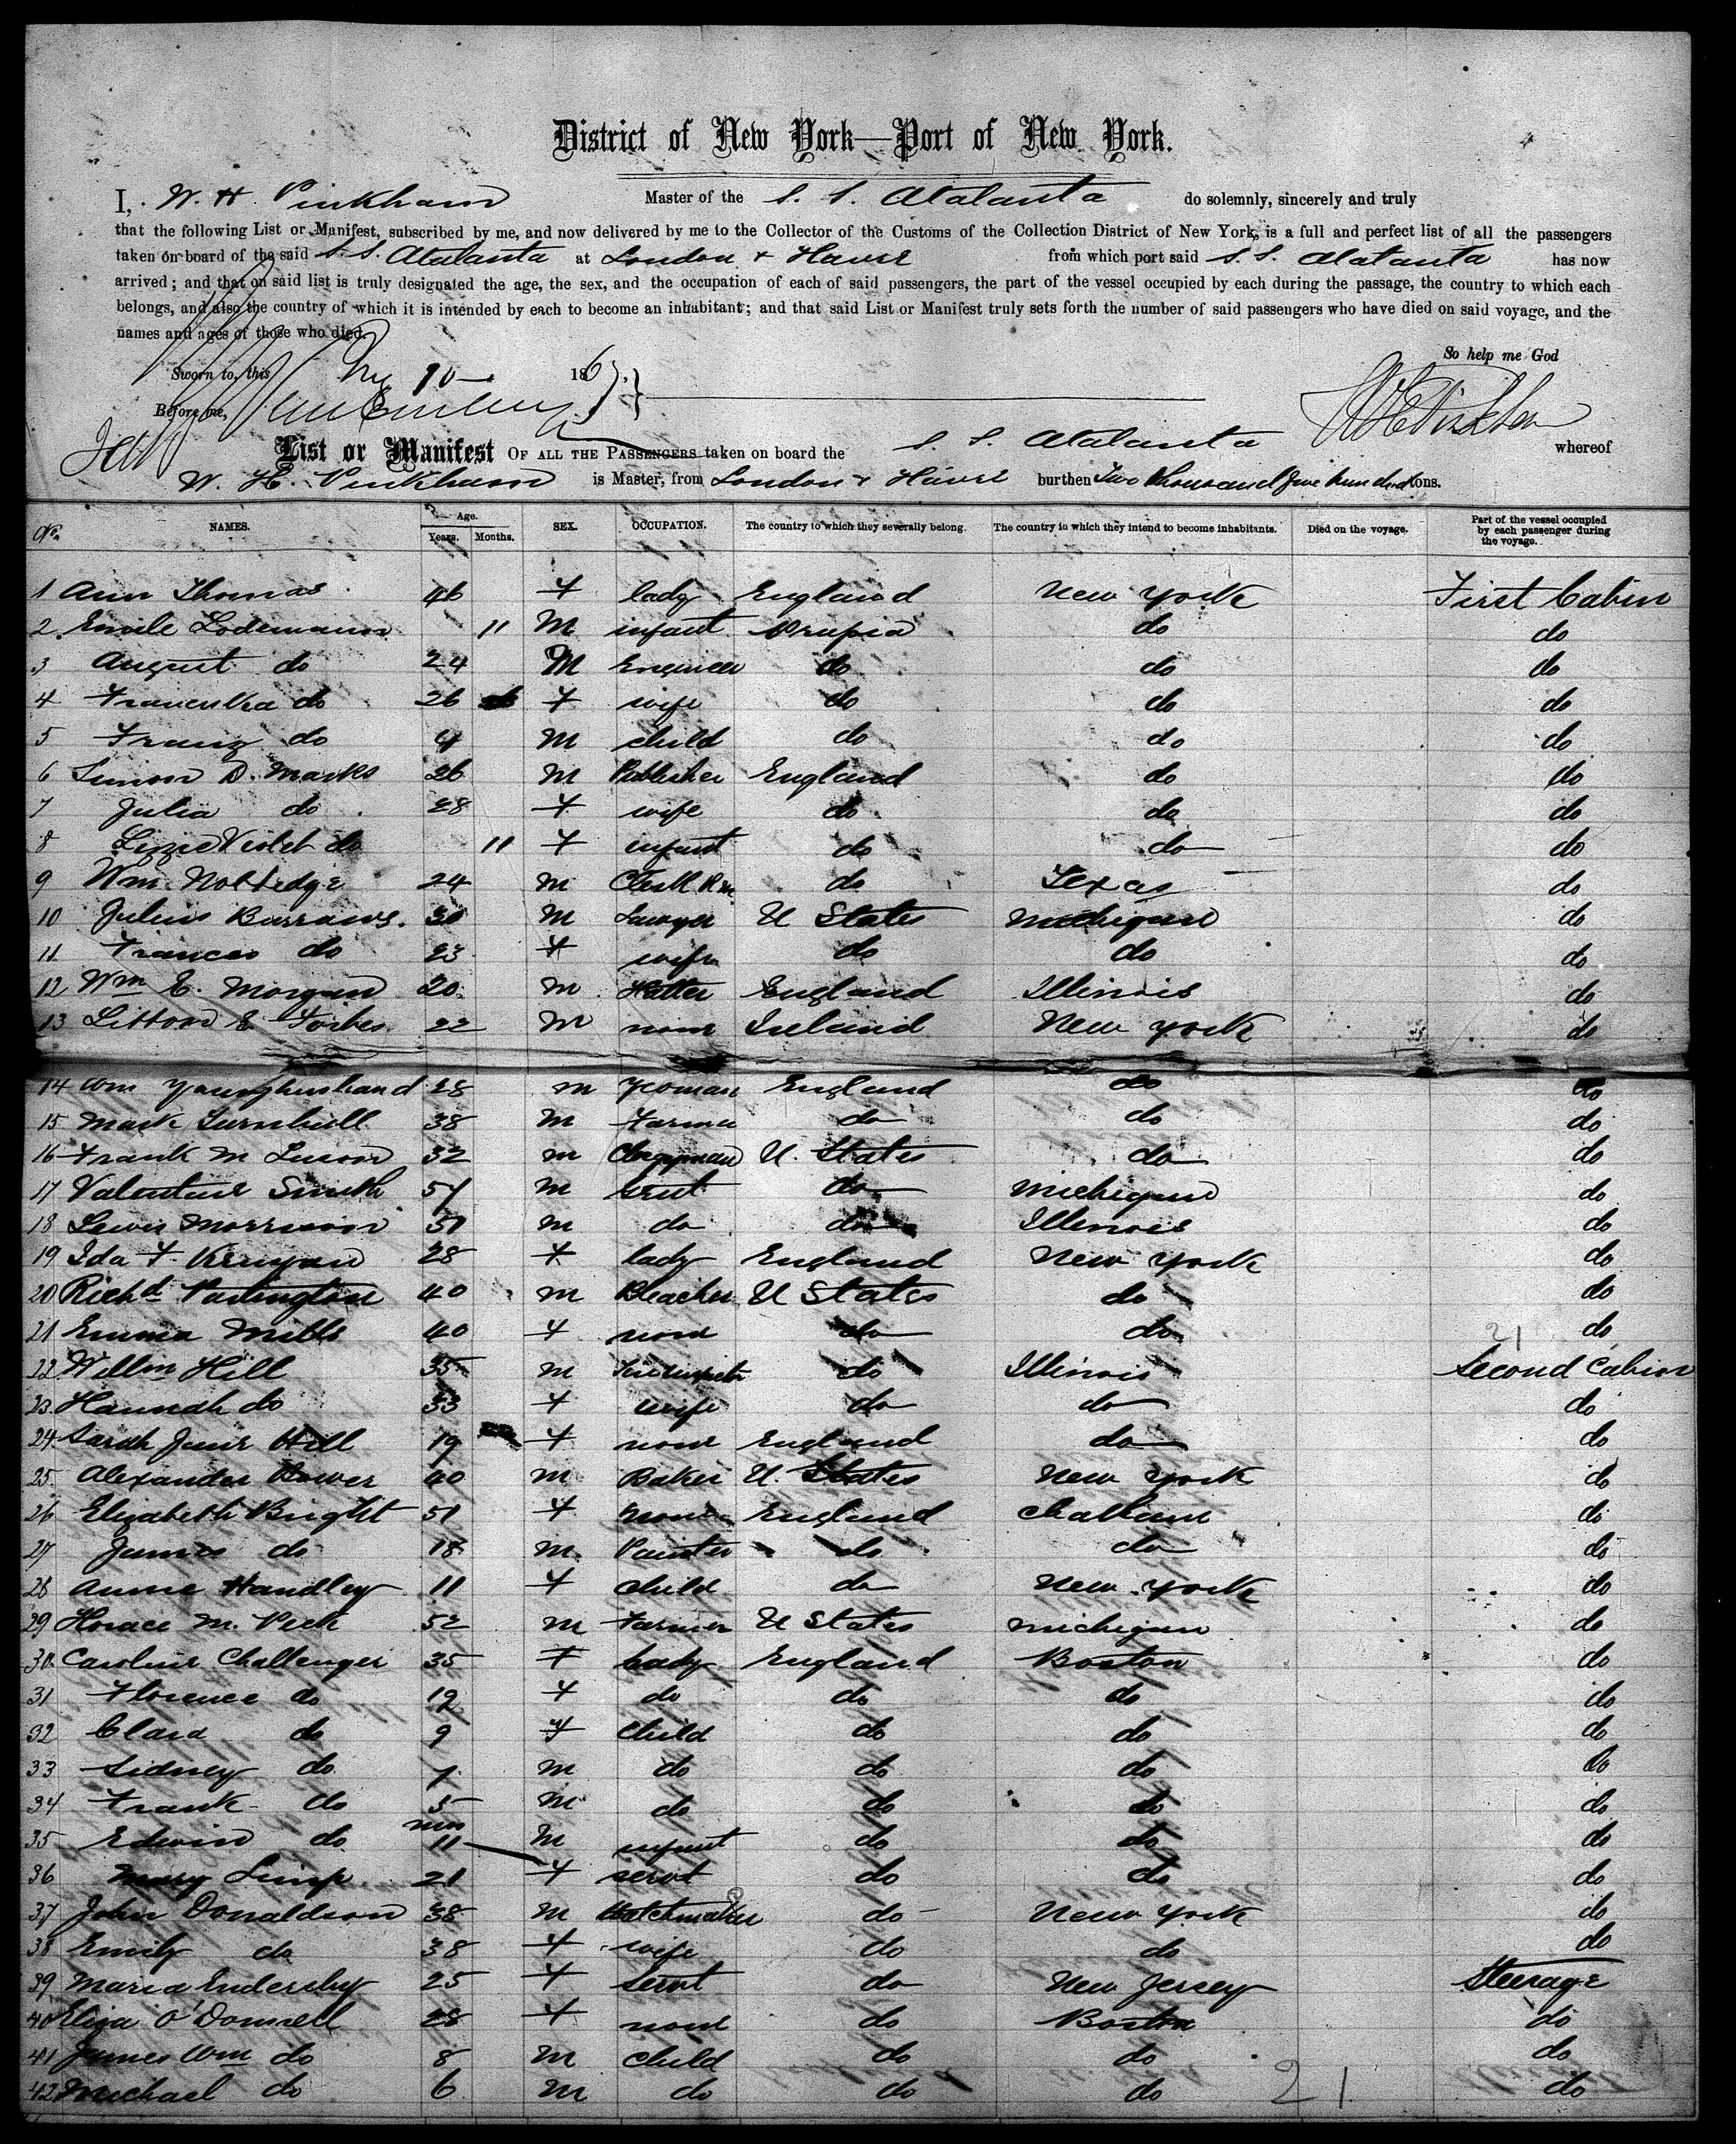 District of New York—Port of New York.
I, W. H. Pinkham Master of the S. S. Atalanta do solemnly, sincerely and truly
that the following List or Manifest, subscribed by me, and now delivered by me to the Collector of the Customs of the Collection District of New York, is a full and perfect list of all the passengers
taken on board of the said S. S. Atalanta at London & Havre from which port said S. S. Atalanta has now
arrived; and that on said list is truly designated the age, the sex, and the occupation of each of said passengers, the part of the vessel occupied by each during the passage, the country to which each
belongs, and also the country of which it is intended by each to become an inhabitant; and that said List or Manifest truly sets forth the number of said passengers who have died on said voyage, and the
names and ages of those who died.
So help me God
Sworn to, this 10 186
Before me,
List or Manifest OF ALL THE PASSENGERS taken on board the S. S. Atalanta whereof
W. H. Pinkham is Master, from London & Havre burthen Two thousand five hundred tons.
No. NAMES. Age. Years. Months. SEX. OCCUPATION. The country to which they severally belong. The country in which they intend to become inhabitants. Died on the voyage. Part of the vessel occupied by each passenger during the voyage.
1 Ann Thomas 46 F lady England New York First Cabin
2 Emile Lodemann 11 M infant Prussia do do
3 August do 24 M Engineer do do do
4 Franciska do 26 F wife do do do
5 Franz do 4 M child do do do
6 Simon D. Marks 26 M Publisher England do do
7 Julia do 28 F wife do do do
8 Lizzie Violet do 11 F infant do do do
9 Wm. 24 M do Texas do
10 Julius Burrows. 30 M Lawyer U States Michigan do
11 Frances do 23 F wife do do do
12 Wm E. Morgan 20 M Hatter England Illinois do
13 Litton E Forbes 22 M none Ireland New York do
14 Wm Younghusband 28 M Yeoman England do do
15 Mark Turnbull 38 M Farmer do do do
16 Frank M 32 M Clergyman U. States do do
17 Valentine Smith 54 M servt do Michigan do
18 Lewis Morrison 51 M do do Illinois do
19 Ida F. Kenyon 28 F lady England New York do
20 Richd Partington 40 M Bleacher U States do do
21 Emma Mills 40 F none do do 21 do
22 Willm Hill 35 M do Illinois Second Cabin
23 Hannah do 33 F wife do do do
24 Sarah Jane Hill 19 F none England do do
25 Alexander Bower 40 M Baker U. States New York do
26 Elizabeth Bright 51 F None England Chatham do
27 James do 18 M Painter do do do
28 Annie Handley 11 F child do New York do
29 Horace M. Peck 52 M Farmer U States Michigan do
30 Caroline Challenger 35 F Lady England Boston do
31 Florence do 12 F do do do do
32 Clara do 9 F child do do do
33 Sidney do 7 M do do do do
34 Frank do 5 M do do do do
35 Edwin do mos 11 M infant do do do
36 Mary 21 F servt do do do
37 John Donaldson 38 M Watchmaker do New York do
38 Emily do 38 F wife do do do
39 Maria Endersby 25 F servt do New Jersey Steerage
40 Eliza O'Donnell 28 F none do Boston do
41 James Wm do 8 M child do do do
42 Michael do 6 M do do do do
21